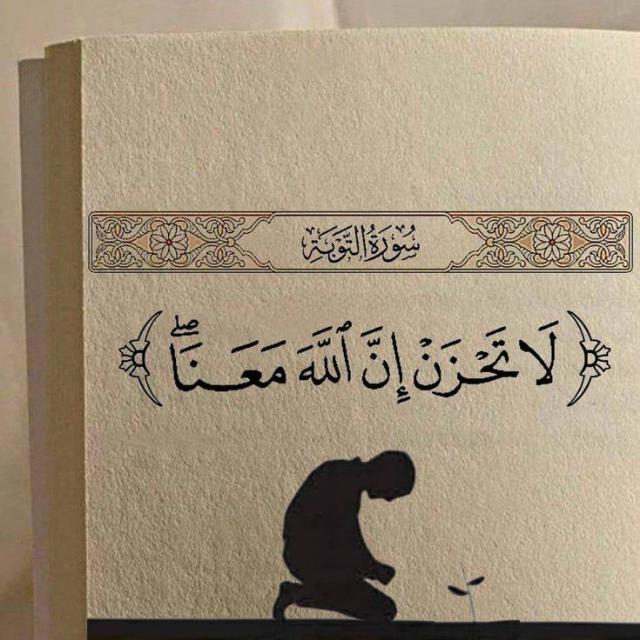 سُورَةُ التَّوْبَةِ
﴿لَا تَحْزَنْ إِنَّ ٱللَّهَ مَعَنَا ۖ﴾